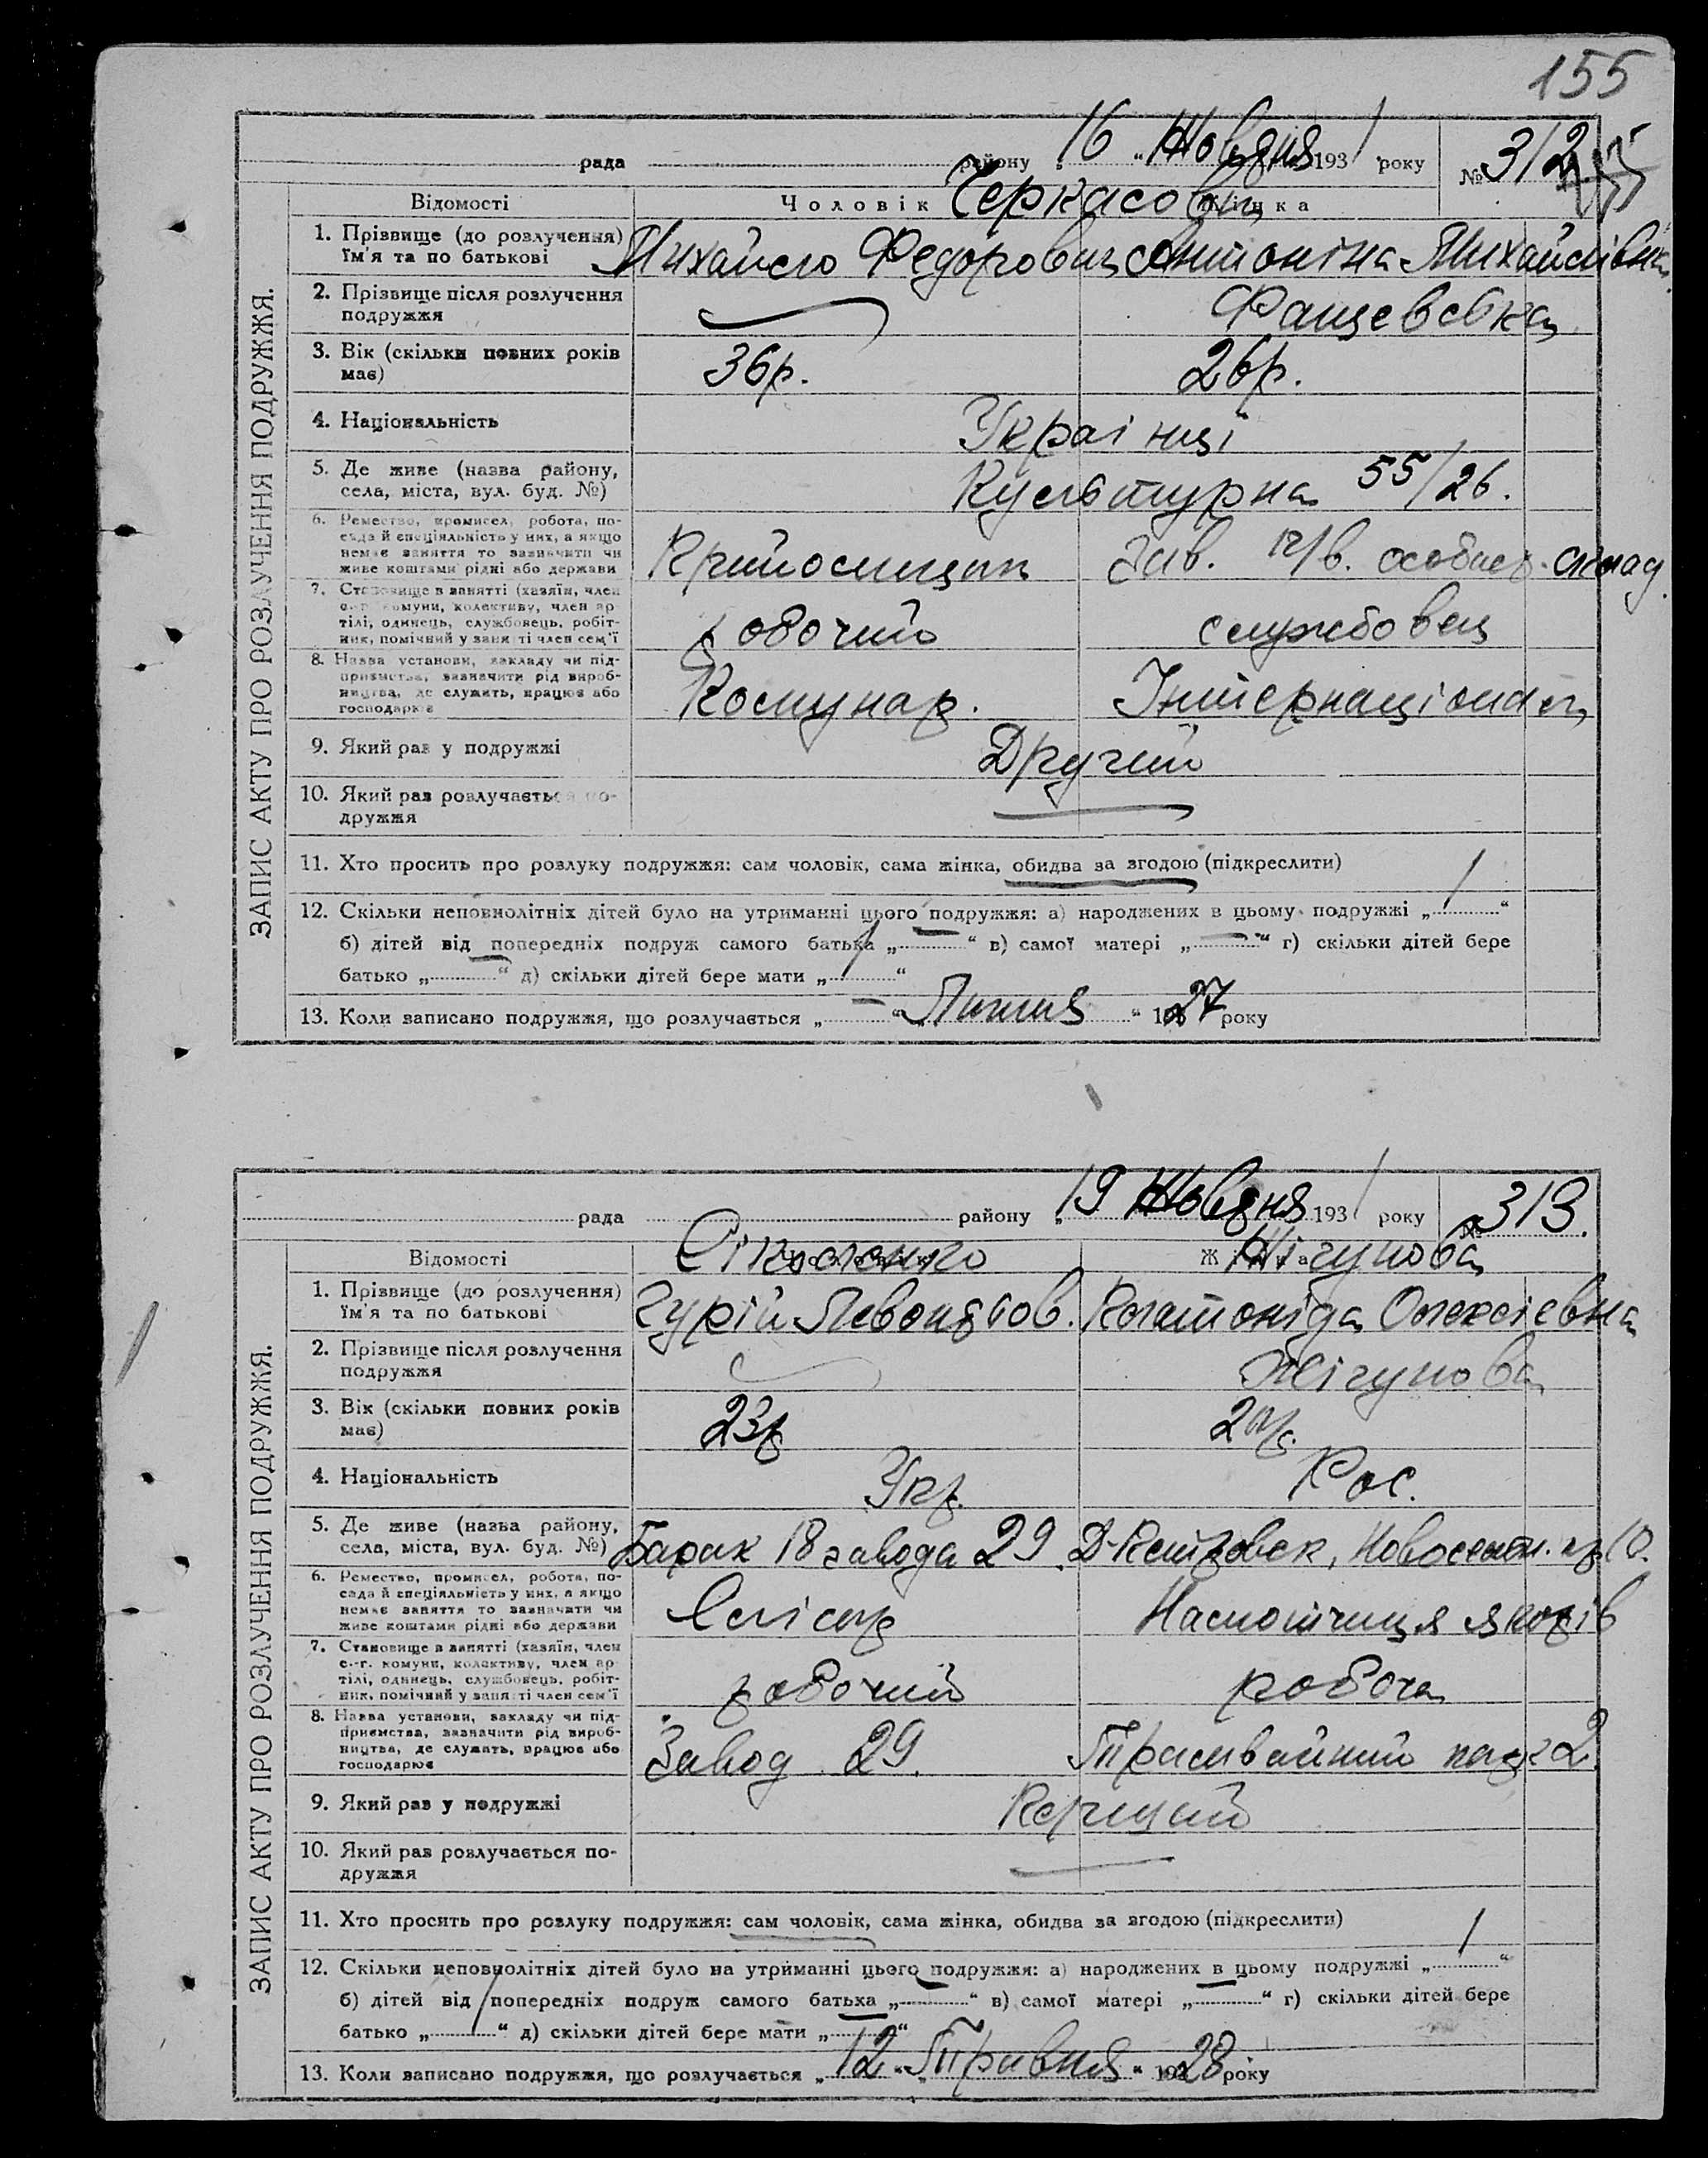 155
ЗАПИС АКТУ ПРО РОЗЛУЧЕННЯ ПОДРУЖЖЯ.
рада району „16“ Жовтня 1931 року № 312
Відомості Чоловік Черкасови Жінка
1. Прізвище (до розлучення) їм'я та по батькові Михайло Федорович Антоніна Михайлівна
2. Прізвище після розлучення подружжя Фащевська
3. Вік (скільки повних років має) 36р. 26р.
4. Національність Украінці
5. Де живе (назва району, села, міста, вул. буд. №) Культурна 55/26.
6. Ремество, промисел, робота, посада й спеціяльність у них, а якщо немає заняття то зазначити чи живе коштами рідні або держави Зав.
7. Становище в занятті (хазяїн, член с.-г. комуни, колективу, член артілі, одинець, службовець, робітник, помічний у занятті член сем'ї робочий службовец
8. Назва установи, закладу чи підприємства, зазначити рід виробництва, де служить, працює або господарює Комунар. Інтернаціонал
9. Який раз у подружжі Другий
10. Який раз розлучається подружжя
11. Хто просить про розлуку подружжя: сам чоловік, сама жінка, обидва за згодою (підкреслити)
12. Скільки неповнолітніх дітей було на утриманні цього подружжя: а) народжених в цьому подружжі „1“
б) дітей від попередніх подруж самого батька „—“ в) самої матері „—“ г) скільки дітей бере
батько „—“ д) скільки дітей бере мати „1“
13. Коли записано подружжя, що розлучається „—“ Липня 1927 року
ЗАПИС АКТУ ПРО РОЗЛУЧЕННЯ ПОДРУЖЖЯ.
рада району „19 Жовтня 1931 року № 313.
Відомості Жінка Жігунова
1. Прізвище (до розлучення) їм'я та по батькові Гурій Олексіевна
2. Прізвище після розлучення подружжя Жігунова
3. Вік (скільки повних років має) 23р
4. Національність Укр. Рос.
5. Де живе (назва району, села, міста, вул. буд. №) Барак 18 завода 29.
6. Ремество, промисел, робота, посада й спеціяльність у них, а якщо немає заняття то зазначити чи живе коштами рідні або держави Слісар якорів
7. Становище в занятті (хазяїн, член с.-г. комуни, колективу, член артілі, одинець, службовець, робітник, помічний у занятті член сем'ї робочий робоча
8. Назва установи, закладу чи підприємства, зазначити рід виробництва, де служить, працює або господарює Завод 29. Трамвайний парк 2.
9. Який раз у подружжі Перший
10. Який раз розлучається подружжя
11. Хто просить про розлуку подружжя: сам чоловік, сама жінка, обидва за згодою (підкреслити)
12. Скільки неповнолітніх дітей було на утриманні цього подружжя: а) народжених в цьому подружжі „1“
б) дітей від попередніх подруж самого батька „—“ в) самої матері „—“ г) скільки дітей бере
батько „1“ д) скільки дітей бере мати „—“
13. Коли записано подружжя, що розлучається „12“ „Травня“ 1928 року